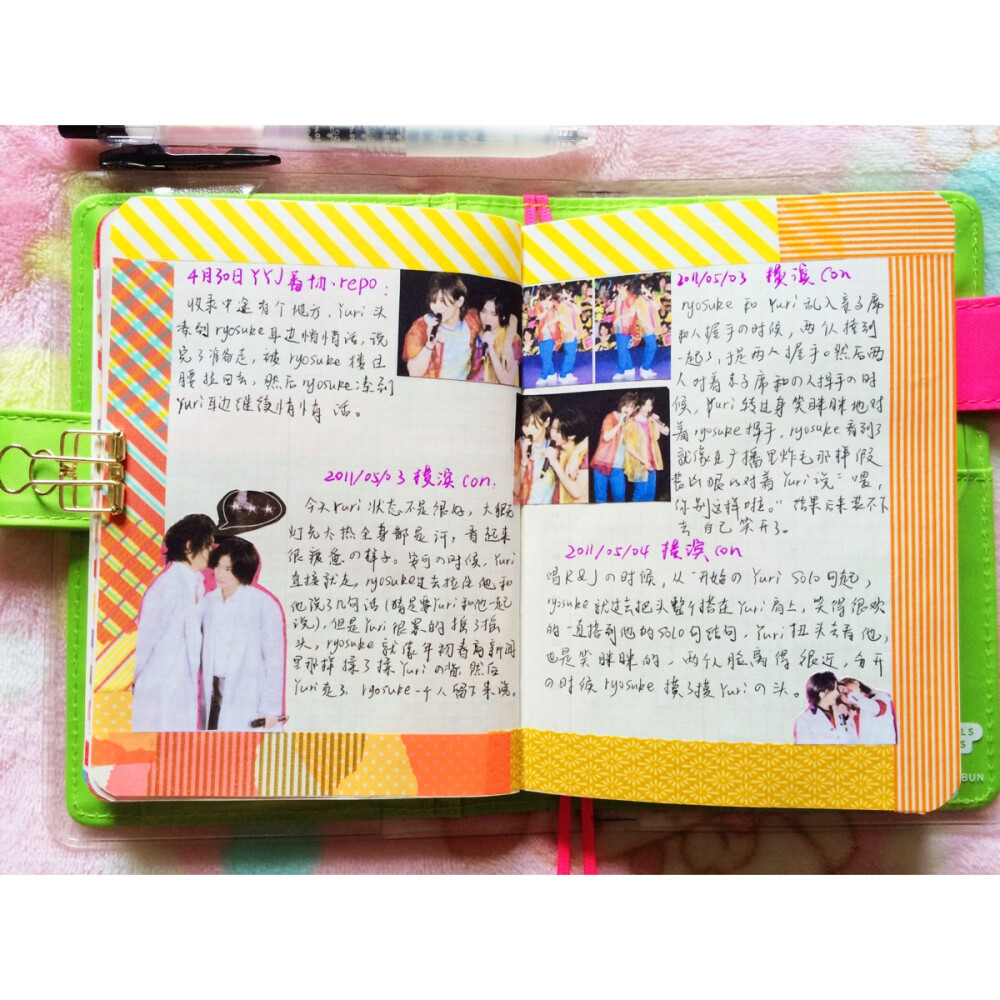 4月30日YYJ番协·repo:
收录中途有个地方，Yuri头
凑到ryosuke耳边悄悄话，说
完了准备走，被ryosuke搂过
腰拉回去，然后ryosuke凑到
Yuri耳边继续悄悄话。
2011/05/03 横滨con:
今天Yuri状态不是很好，大概是
灯光太热全身都是汗，看起来
很疲惫の样子。安可の时候，Yuri
直接就走，ryosuke过去拉住他和
他说了几句话(貌似是要Yuri和他一起
说)，但是Yuri很累的摇了摇
头，ryosuke就像年初看高新闻
里那样揉了揉Yuriの背，然后
Yuri走了ryosuke一个人留下来说。
2011/05/03 横滨con
ryosuke和Yuri乱入亲子席
和人握手の时候，两个人撞到
一起了，于是两人握手。然后两
人对着亲子席和の人挥手の时
候，Yuri转过身笑眯眯地对
着ryosuke挥手，ryosuke看到了
就像在广播里炸毛那样假
装凶狠の对着Yuri说“喂，
你别这样啦。”结果后来装不下
去自己笑开了。
2011/05/04 横滨con
唱R&Jの时候，从一开始のYuri solo句起，
ryosuke就过去把头整个搭在Yuri肩上，笑得很欢
的一直搭到他的solo句结句，Yuri扭头去看他，
也是笑眯眯的，两个人脸离得很近，分开
の时候ryosuke摸了摸Yuriの头。
LS
S
BUN